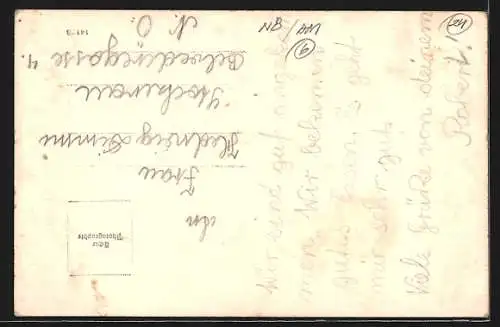 Wir sind gut angekom
men. Wir bekommen
gutes Essen. Es geht
mir sehr gut.
Viele Grüße von deinem
Robert.
An
Frau
Hedwig Simmu
Stockerau
Belvederegasse 4.
N. Ö.
Echte
Photographie
6
24